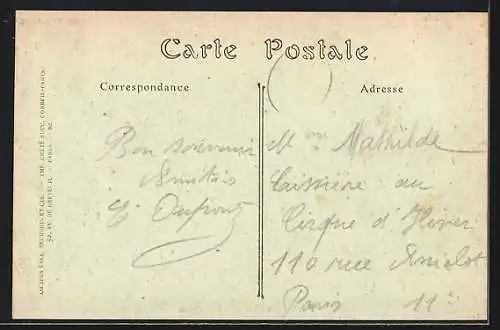 Carte Postale
Correspondance
Adresse
Bon souvenir
Amitiés
Mme Mathilde
Caissière au
Cirque d'Hiver
110 rue Amelot
Paris 11e